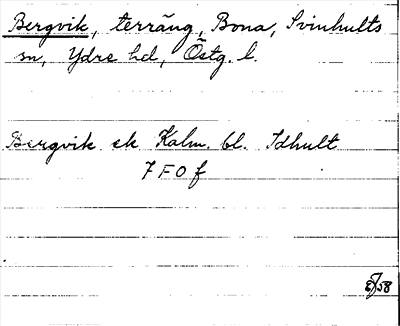 Bergvik, terräng, Bona, Svinhults
sn, Ydre hd, Östg. l.
Bergvik ek Kalm. bl. Idhult
7 F 0 f